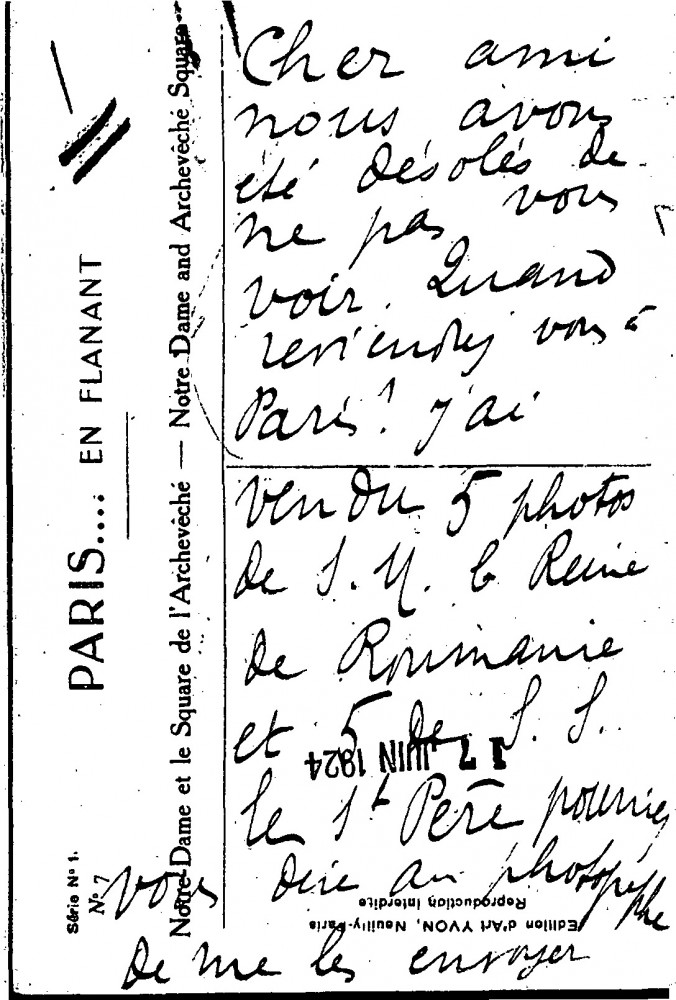 Cher ami
nous avons
été désolés de
ne pas vous
voir. Quand
reviendrez vous à
Paris? j'ai
vendu 5 photos
de S. M. la Reine
de Roumanie
et 5 de S. S.
le St Père pourriez
vous dire au photographe
de me les envoyer
17 JUIN 1924
PARIS.... EN FLANANT
Notre-Dame et le Square de l'Archevêché — Notre Dame and Archevêché Square
Série Nº 1.
Nº 7
Edition d'Art YVON, Neuilly-Paris
Reproduction Interdite